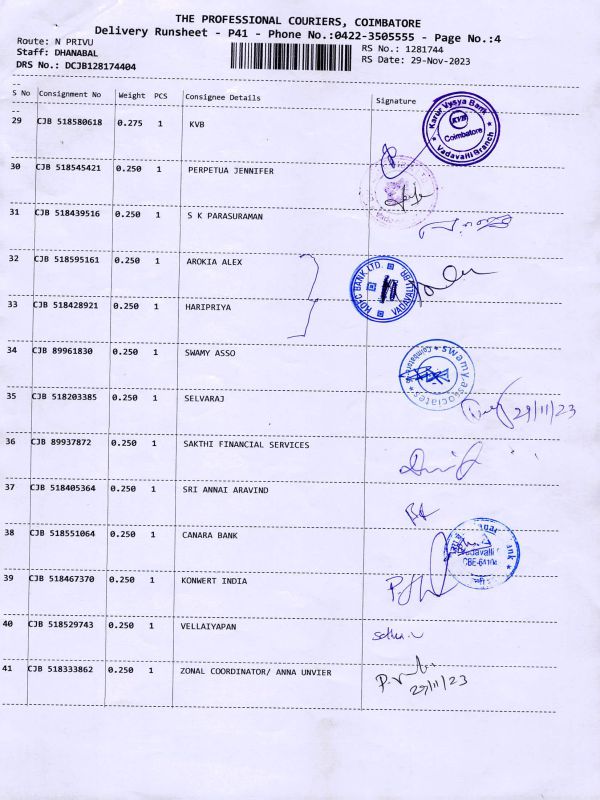 THE PROFESSIONAL COURIERS, COIMBATORE
Delivery Runsheet - P41 - Phone No.:0422-3505555 - Page No.:4
Route: N PRIVU
Staff: DHANABAL
DRS No.: DCJB128174404
RS No.: 1281744
RS Date: 29-Nov-2023
S No Consignment No Weight PCS Consignee Details Signature
29 CJB 518580618 0.275 1 KVB
Karur Vysya Bank
KVB
Coimbatore
Vadavalli Branch
30 CJB 518545421 0.250 1 PERPETUA JENNIFER
31 CJB 518439516 0.250 1 S K PARASURAMAN
32 CJB 518595161 0.250 1 AROKIA ALEX
HDFC BANK LTD.
VADAVALLI BR
33 CJB 518428921 0.250 1 HARIPRIYA
34 CJB 89961830 0.250 1 SWAMY ASSO
swamy associates
Coimbatore
35 CJB 518203385 0.250 1 SELVARAJ
29/11/23
36 CJB 89937872 0.250 1 SAKTHI FINANCIAL SERVICES
37 CJB 518405364 0.250 1 SRI ANNAI ARAVIND
38 CJB 518551064 0.250 1 CANARA BANK
Vadavalli
39 CJB 518467370 0.250 1 KONWERT INDIA
40 CJB 518529743 0.250 1 VELLAIYAPAN
41 CJB 518333862 0.250 1 ZONAL COORDINATOR/ ANNA UNVIER
29/11/23